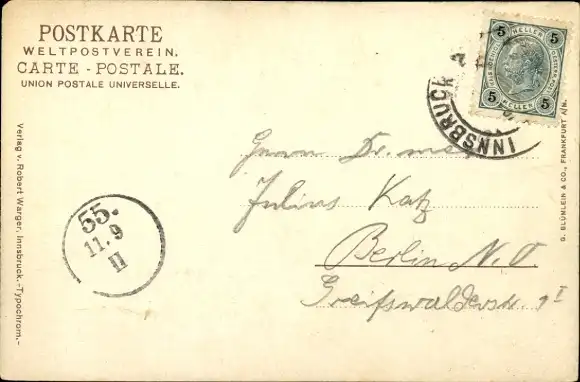 POSTKARTE
WELTPOSTVEREIN.
CARTE - POSTALE.
UNION POSTALE UNIVERSELLE.
5 HELLER 5
5 HELLER 5
INNSBRUCK
Herrn Dr. med
Julius Katz
Berlin N.O.
Greifswalderstr. 9 I
55.
11.9
II
Verlag v. Robert Warger, Innsbruck.-Typochrom.-
G. BLÜMLEIN & CO., FRANKFURT A/N.